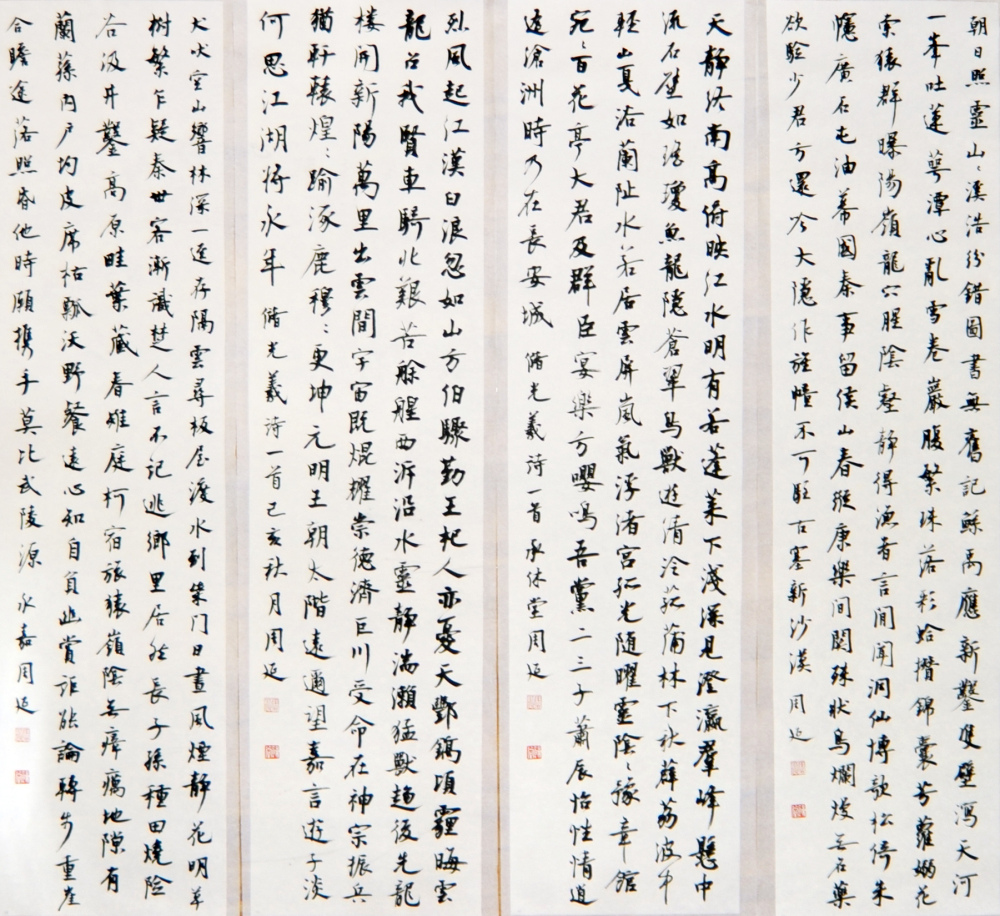 朝日照靈山〻溪浩紛錯圖書無舊記鯀禹應新鑿雙壁瀉天河
一峯吐蓮萼潭心亂雪卷巖腹繁珠落彩蛤攢錦囊芳蘿嫋花
索猿群曝陽嶺龍穴腥陰壑靜得漁者言閒聞洞仙博歌松倚朱
幰廣石屯油幕國秦事留侯山春縱康樂間關殊狀鳥爛熳無名藥
欲驗少君方還吟大隱作旌幢不可駐古塞新沙漠 周延
天靜洛南高俯映江水明有若蓬萊下淺深見澄瀛群峰懸中
流石壁如瑤瓊魚龍隱蒼翠鳥獸遊清泠菰蒲林下秋薜荔波中
輕山戛浴蘭阯水若居雲屏嵐氣浮渚宮孤光隨曜靈陰〻豫章館
宛〻百花亭大君及群臣宴樂方嚶鳴吾黨二三子蕭辰怡性情逍
遙滄洲時乃在長安城 儲光羲詩一首 承休堂周延
烈風起江漢白浪忽如山方伯驟勤王杞人亦憂天酆鎬頃霾晦雲
龍召我賢車騎北艱苦艅艎西泝沿水靈靜湍瀨猛獸趨後先龍
樓開新陽萬里出雲間宇宙既焜耀崇德濟巨川受命在神宗振兵
猶軒轅煌〻踰涿鹿穆〻更坤元明王朝太階遠邇望嘉言遊子淡
何思江湖將永年 儲光羲詩一首己亥秋月周延
犬吠空山響林深一逕存隔雲尋板屋渡水到柴門日晝風煙靜花明草
樹繁乍疑秦世客漸識楚人言不記逃鄉里居然長子孫種田燒險
谷汲井鑿高原畦葉藏春雉庭柯宿旅猿嶺陰無瘴癘地隙有
蘭蓀內戶均皮席枯瓢沃野餐遠心知自負幽賞詎能論轉步重崖
合瞻途落照昏他時願攜手莫比武陵源 永嘉周延